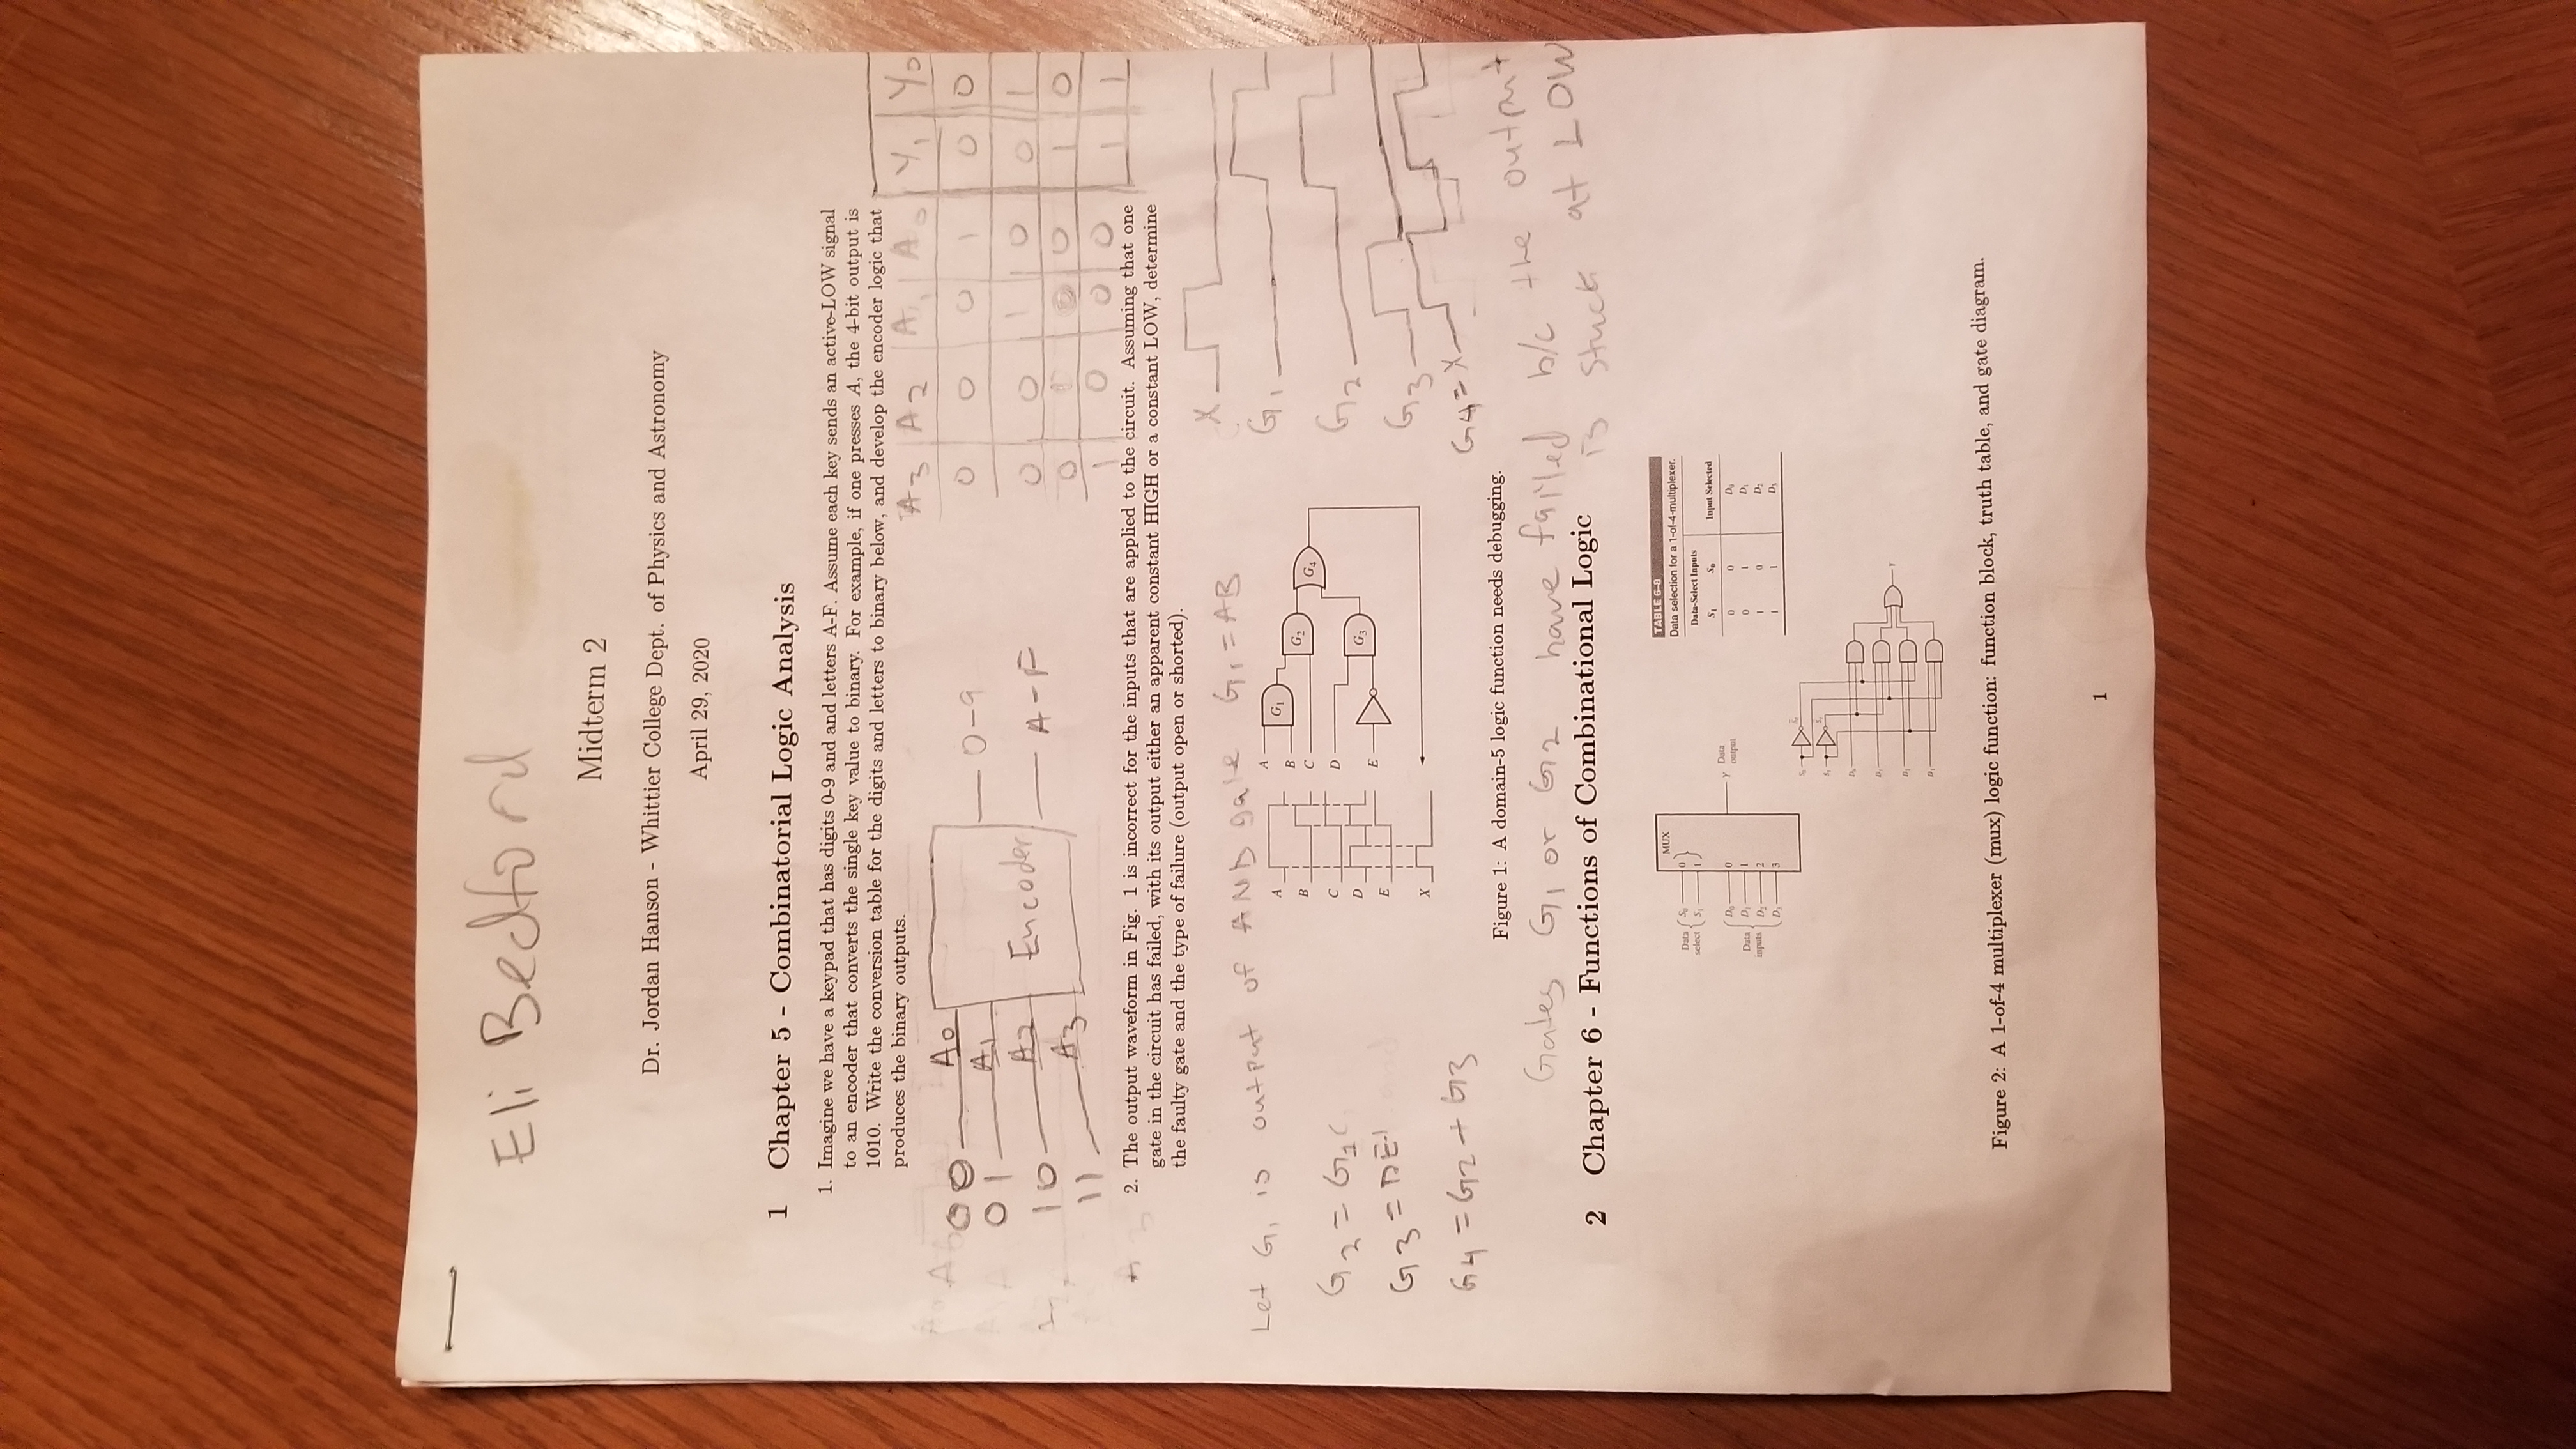 Eli Bedford
Midterm 2
Dr. Jordan Hanson - Whittier College Dept. of Physics and Astronomy
April 29, 2020
1 Chapter 5 - Combinatorial Logic Analysis
1. Imagine we have a keypad that has digits 0-9 and and letters A-F. Assume each key sends an active-LOW signal
to an encoder that converts the single key value to binary. For example, if one presses A, the 4-bit output is
1010. Write the conversion table for the digits and letters to binary below, and develop the encoder logic that
produces the binary outputs.
00 A0
01 A1
10 A2
11 A3
Encoder
0-9
A-F
A3 A2 A1 A0 Y1 Y0
0 0 0 1 0 0
0 0 1 0 0 1
0 1 0 0 1 0
1 0 0 0 1 1
2. The output waveform in Fig. 1 is incorrect for the inputs that are applied to the circuit. Assuming that one
gate in the circuit has failed, with its output either an apparent constant HIGH or a constant LOW, determine
the faulty gate and the type of failure (output open or shorted).
Let G1 is output of AND gate G1 = AB
G2 = G1C
G3 = DE'
G4 = G2 + G3
A
B
C
D
E
X
A
B
C
D
E
G1
G2
G3
G4
X
G1
G2
G3
G4=X
Figure 1: A domain-5 logic function needs debugging.
Gates G1 or G2 have failed b/c the output
is stuck at LOW
2 Chapter 6 - Functions of Combinational Logic
MUX
Data select
S0 0
S1 1
Data inputs
D0 0
D1 1
D2 2
D3 3
Y Data output
TABLE 6-8
Data selection for a 1-of-4-multiplexer.
Data-Select Inputs
S1 S0 Input Selected
0 0 D0
0 1 D1
1 0 D2
1 1 D3
S0
S1
D0
D1
D2
D3
Y
Figure 2: A 1-of-4 multiplexer (mux) logic function: function block, truth table, and gate diagram.
1